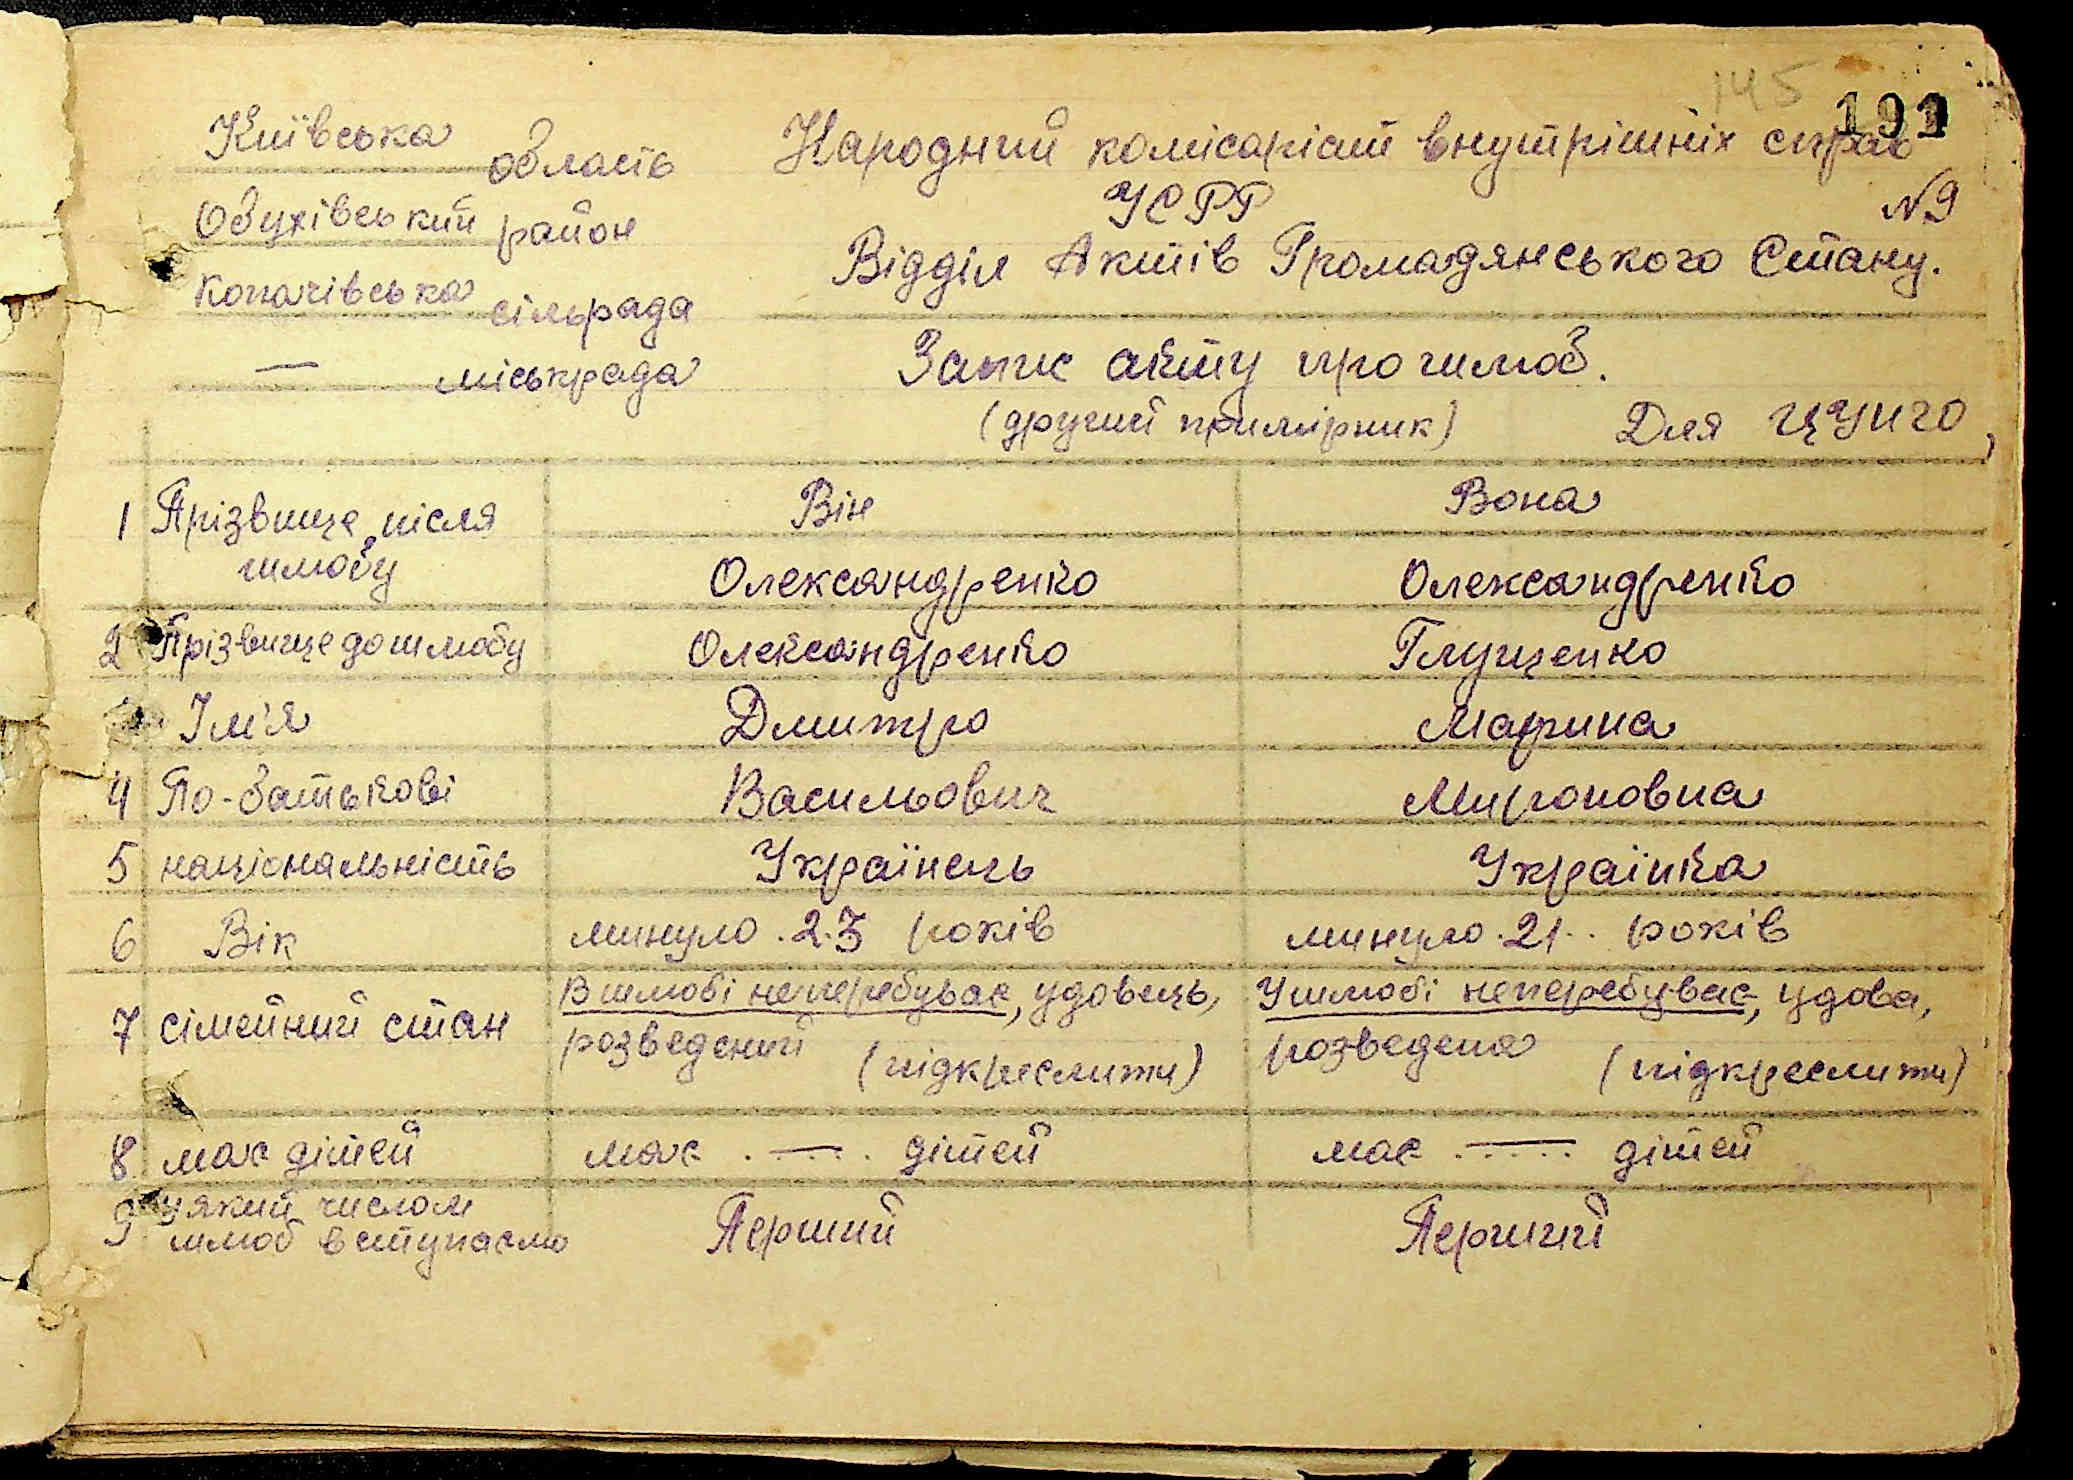 145
191
Київська область
Обухівський район
Копачівська сільрада
— міськрада
Народний комісаріат внутрішніх справ
УСРР
№ 9
Відділ Актів Громадянського Стану.
Запис акту про шлюб.
(другий примірник) Для ЦУНГО
Він Вона
1 Прізвище після шлюбу Олександренко Олександренко
2 Прізвище до шлюбу Олександренко Глущенко
Ім'я Дмитро Марина
4 По-батькові Васильович Мироновна
5 національність Українець Українка
6 Вік минуло 23 років минуло 21 років
7 сімейний стан В шлюбі неперебуває, удовець, розведений (підкреслити) У шлюбі неперебуває, удова, розведена (підкреслити)
8 має дітей має — дітей має — дітей
9 у який числом шлюб вступаємо Перший Перший